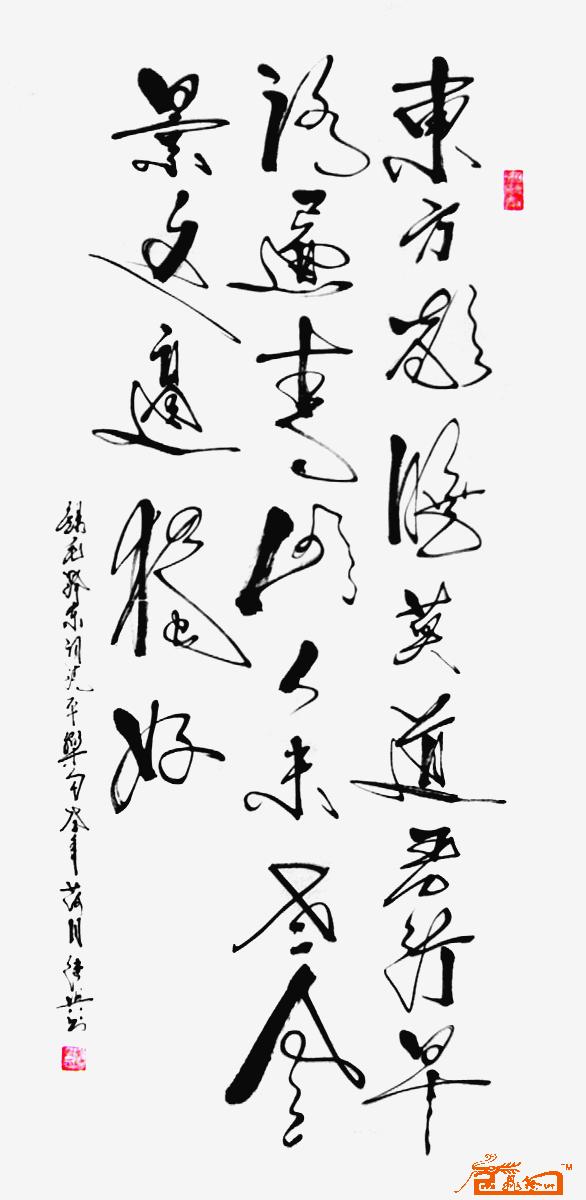 東方欲曉莫道君行早
踏遍青山人未老風
景这邊獨好
錄毛澤東詞清平樂句年荷月